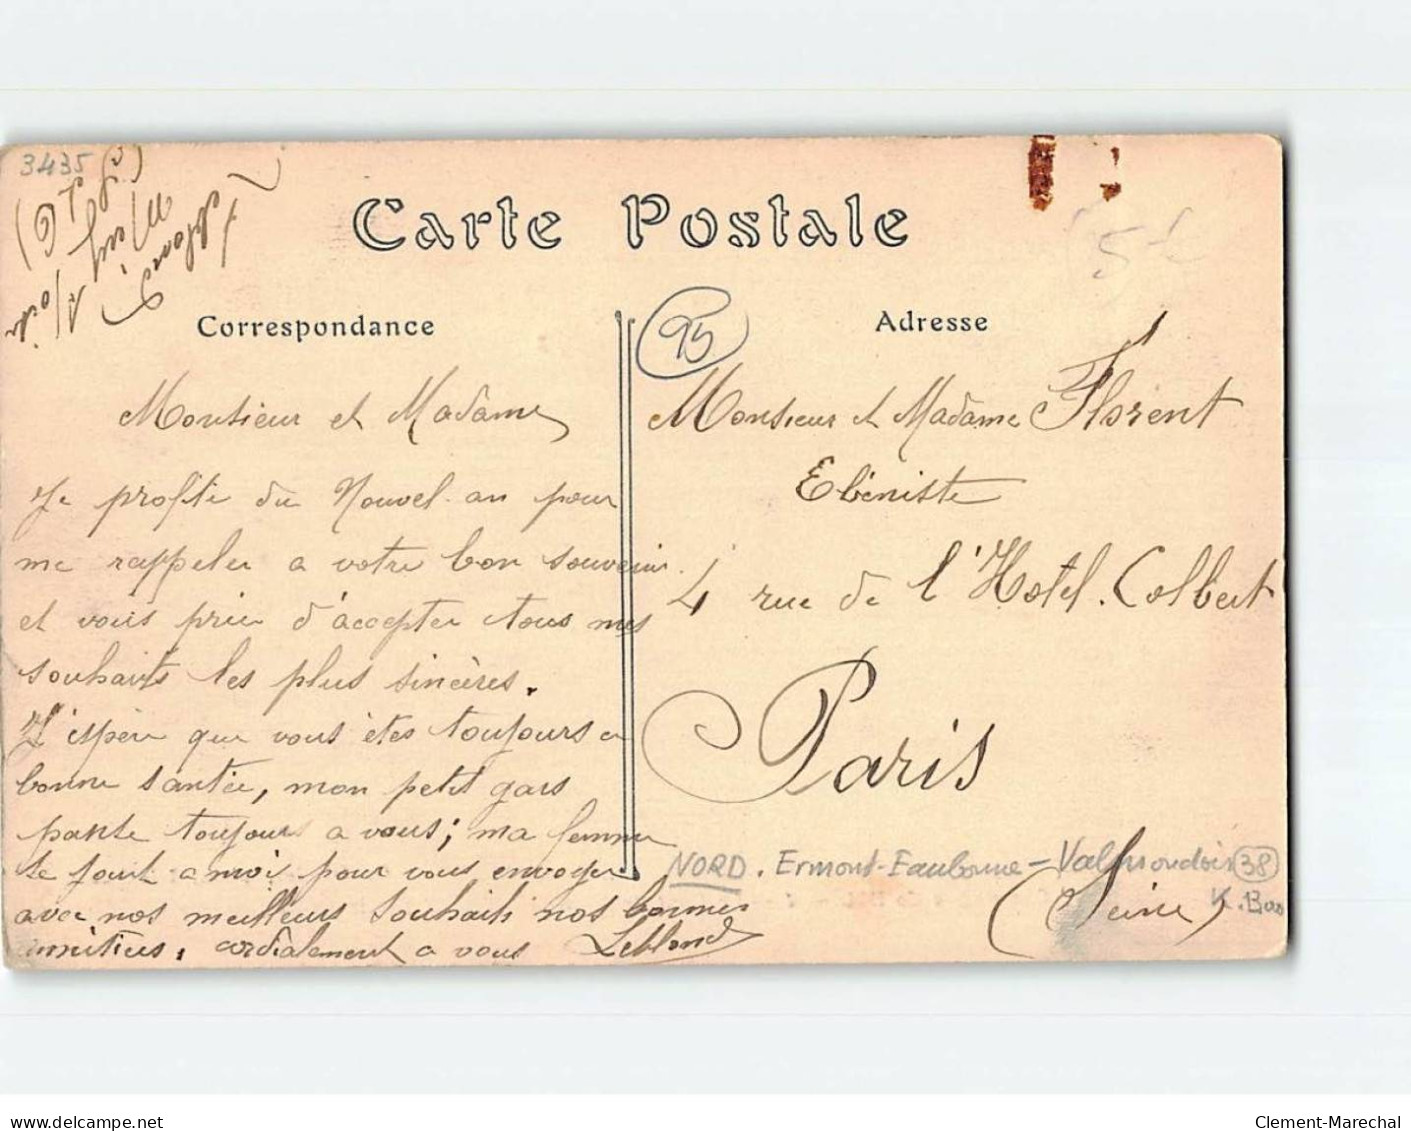 3435
Carte Postale
5£
Correspondance
95
Adresse
Monsieur et Madame
Je profite du Nouvel an pour
me rappeler a votre bon souvenir.
et vous prie d'accepter tous mes
souhaits les plus sincères.
J'espère que vous êtes toujours en
bonne santée, mon petit gars
pense toujours a vous; ma femme
se joint a moi pour vous envoyer
avec nos meilleurs souhaits nos bonnes
amitiées. cordialement a vous Leblond
Monsieur et Madame Florent
Ebéniste
4 rue de l'Hotel. Colbert
Paris
(Seine)
NORD. Ermont-Eaubonne - Valmondois 38
K.Boo
Clement-Marechal
www.delcampe.net